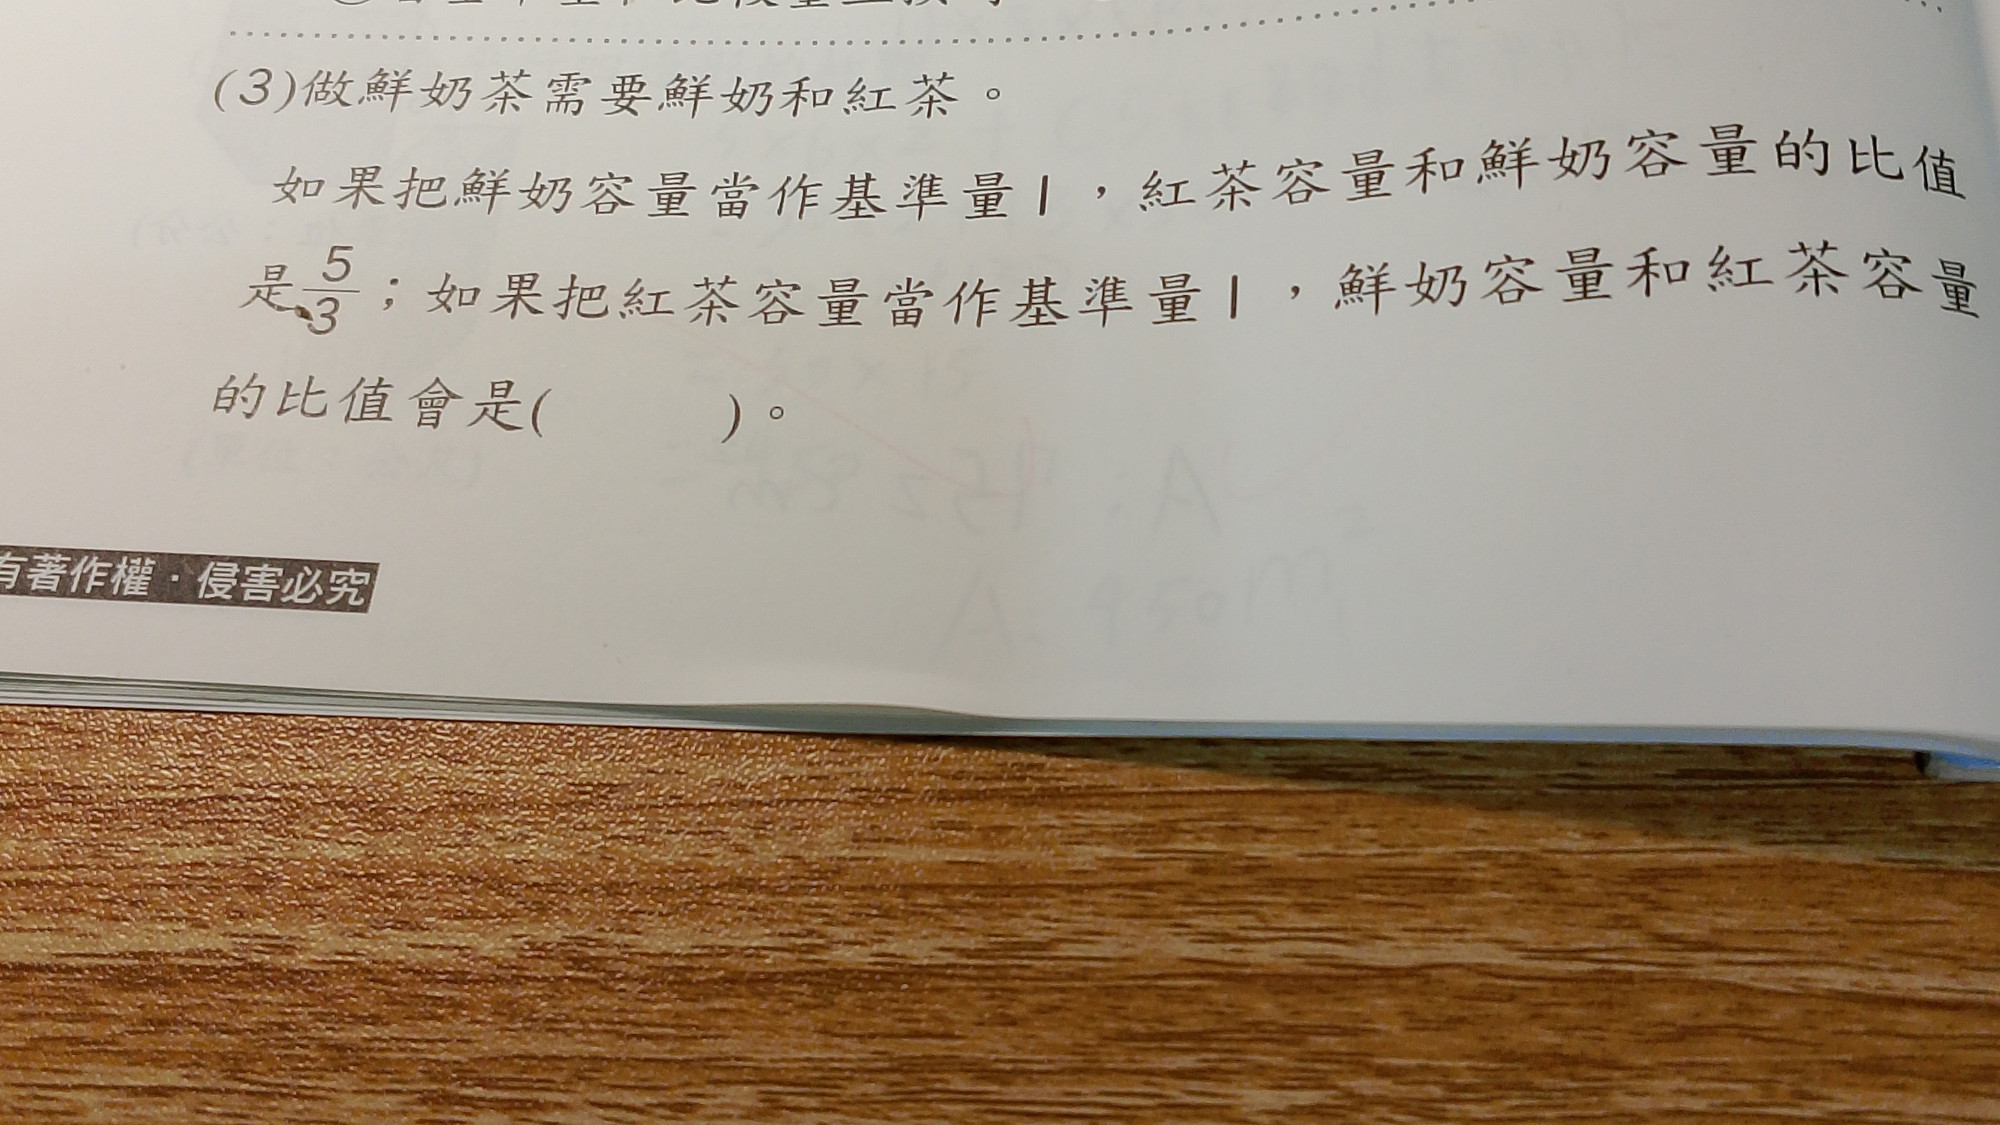 (3)做鮮奶茶需要鮮奶和紅茶。
如果把鮮奶容量當作基準量1，紅茶容量和鮮奶容量的比值
是5/3；如果把紅茶容量當作基準量1，鮮奶容量和紅茶容量
的比值會是(　　　)。
有著作權·侵害必究